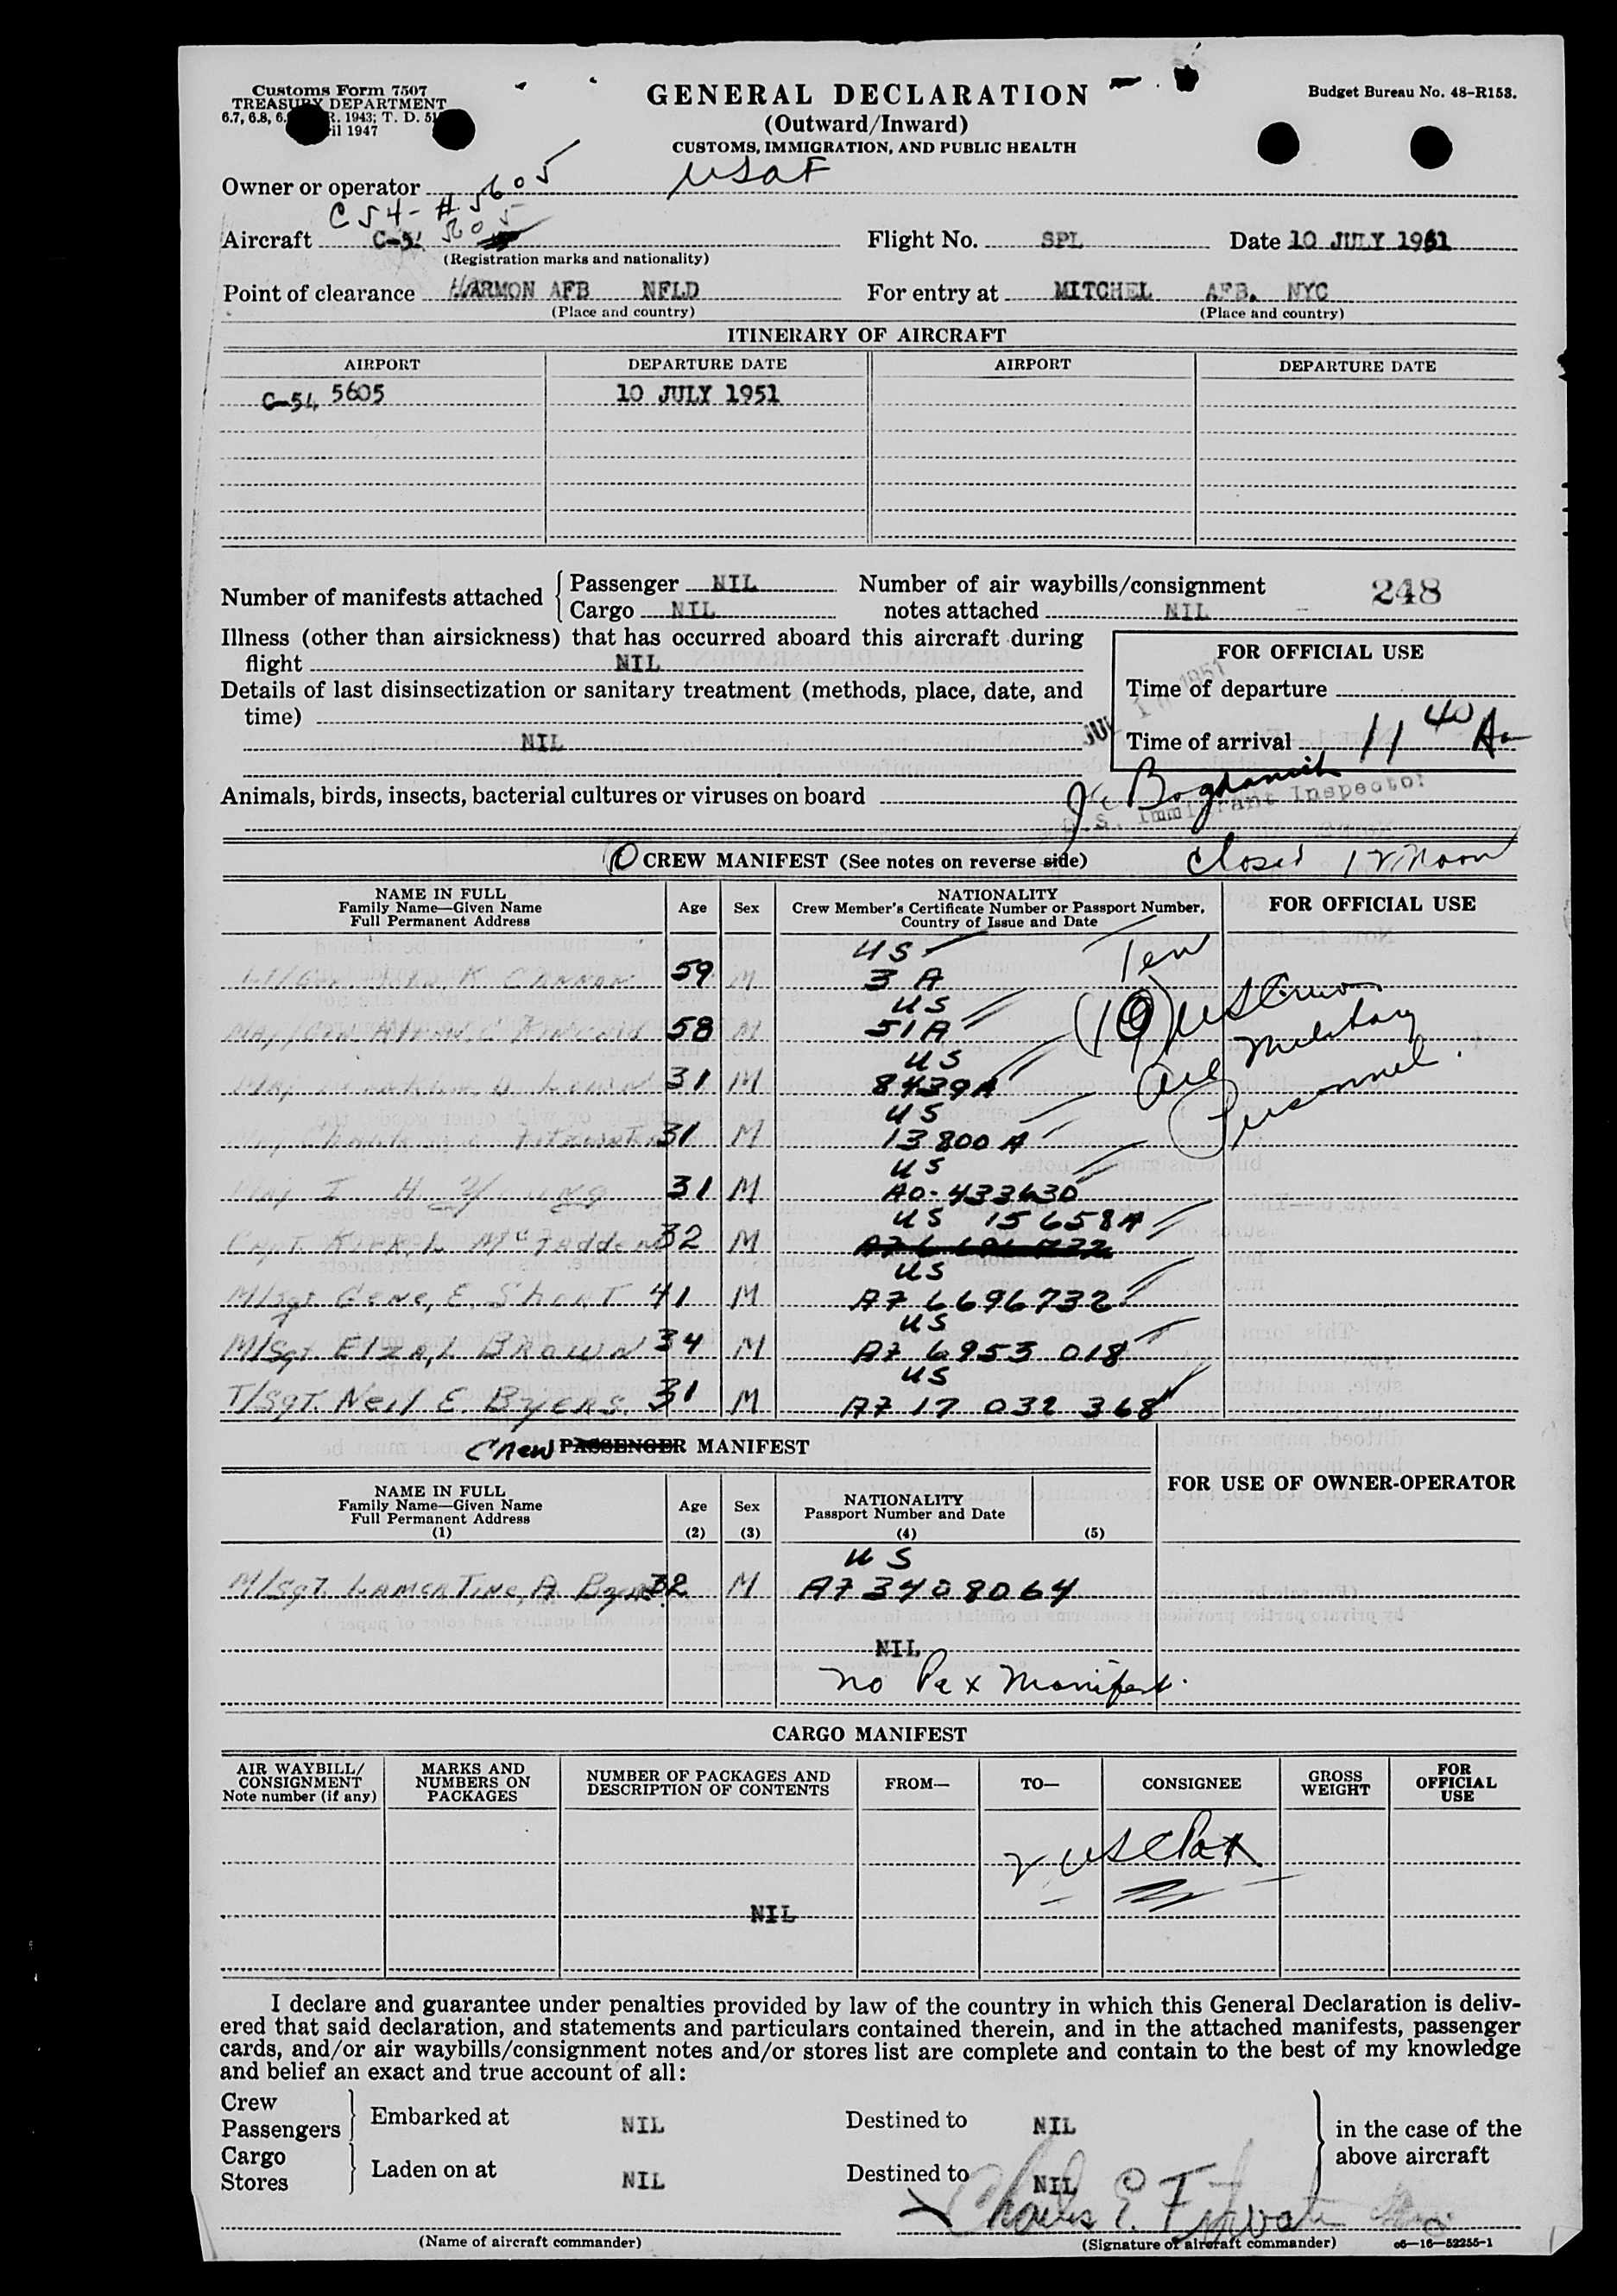 Customs Form 7507
TREASURY DEPARTMENT
6.7, 6.8, 6. R. 1943; T. D. 51
il 1947
GENERAL DECLARATION
(Outward/Inward)
CUSTOMS, IMMIGRATION, AND PUBLIC HEALTH
Budget Bureau No. 48-R153.
Owner or operator USAF
C54-# 5605
Aircraft C-54 5605
(Registration marks and nationality)
Flight No. SPL Date 10 JULY 1951
Point of clearance HARMON AFB NFLD For entry at MITCHEL AFB. NYC
(Place and country) (Place and country)
ITINERARY OF AIRCRAFT
AIRPORT DEPARTURE DATE AIRPORT DEPARTURE DATE
C-54 5605 10 JULY 1951
Number of manifests attached Passenger NIL Number of air waybills/consignment 248
Cargo NIL notes attached NIL
Illness (other than airsickness) that has occurred aboard this aircraft during
flight NIL
FOR OFFICIAL USE
Details of last disinsectization or sanitary treatment (methods, place, date, and
Time of departure
time)
JUL 1951
NIL
Time of arrival 11 40 A
Animals, birds, insects, bacterial cultures or viruses on board
U.S. Immigrant Inspector
CREW MANIFEST (See notes on reverse side) Closed 12 Noon
NAME IN FULL
Family Name—Given Name
Full Permanent Address
Age Sex
NATIONALITY
Crew Member's Certificate Number or Passport Number,
Country of Issue and Date
FOR OFFICIAL USE
US
K. Cannon 59 M 3 A
US
Kincaid 58 M 51 A
US
Maj 31 M 8439A
US
31 M 13800 A
US
Maj I H Young 31 M AO-433630
US 15658A
Capt. Kirk, L McFadden 32 M
US
M/Sgt Gene, E. Short 41 M AF 6696732
US
M/Sgt Elza, L Brown 34 M AF 6953 018
US
T/Sgt. Neil E. Byers 31 M AF 17 032 368
Ten
(10) US Crew
All Military
Personnel.
Crew PASSENGER MANIFEST
NAME IN FULL
Family Name—Given Name
Full Permanent Address
(1)
Age
(2)
Sex
(3)
NATIONALITY
Passport Number and Date
(4) (5)
FOR USE OF OWNER-OPERATOR
US
M/Sgt. A 32 M AF 3408064
NIL
no Pax Manifest.
CARGO MANIFEST
AIR WAYBILL/
CONSIGNMENT
Note number (if any)
MARKS AND
NUMBERS ON
PACKAGES
NUMBER OF PACKAGES AND
DESCRIPTION OF CONTENTS
FROM— TO— CONSIGNEE
GROSS
WEIGHT
FOR
OFFICIAL
USE
NIL
I declare and guarantee under penalties provided by law of the country in which this General Declaration is deliv-
ered that said declaration, and statements and particulars contained therein, and in the attached manifests, passenger
cards, and/or air waybills/consignment notes and/or stores list are complete and contain to the best of my knowledge
and belief an exact and true account of all:
Crew
Passengers Embarked at NIL Destined to NIL in the case of the
Cargo above aircraft
Stores Laden on at NIL Destined to NIL
Charles E.
(Name of aircraft commander) (Signature of aircraft commander) c6—16—52255-1